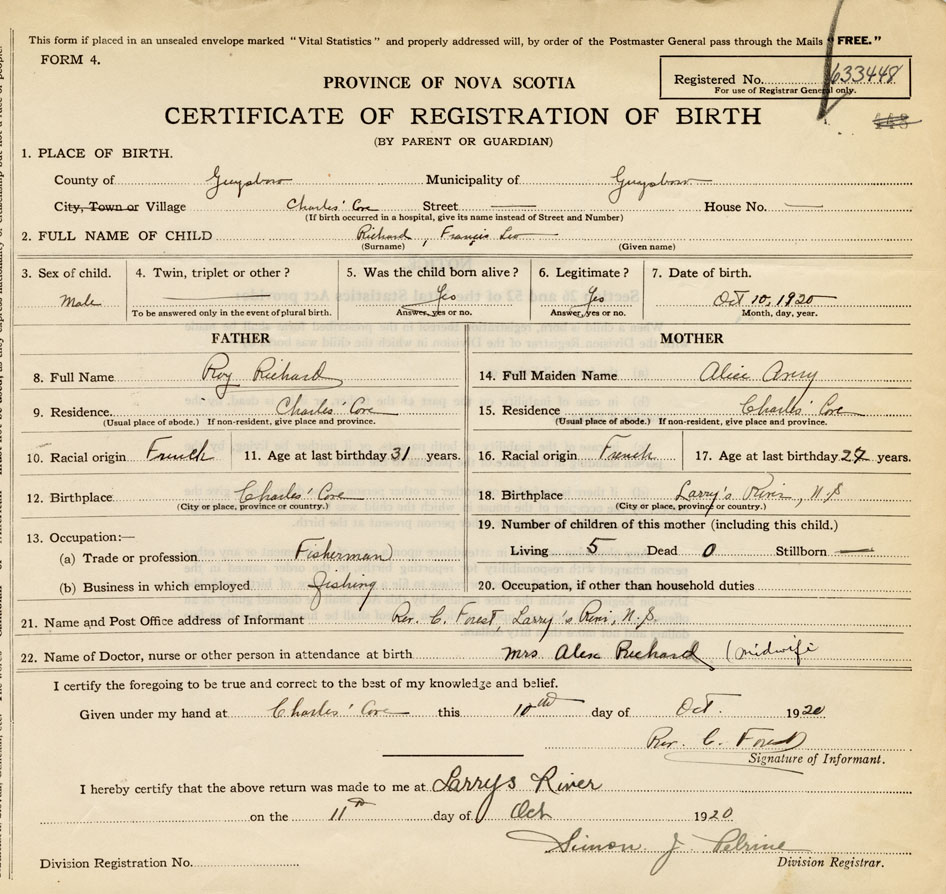 This form if placed in an unsealed envelope marked "Vital Statistics" and properly addressed will, by order of the Postmaster General pass through the Mails "FREE."
FORM 4.
Registered No. 633448
For use of Registrar General only.
PROVINCE OF NOVA SCOTIA
CERTIFICATE OF REGISTRATION OF BIRTH
(BY PARENT OR GUARDIAN)
1. PLACE OF BIRTH.
County of Guysboro Municipality of Guysboro
City, Town or Village Charles' Cove Street — House No. —
(If birth occurred in a hospital, give its name instead of Street and Number)
2. FULL NAME OF CHILD Richard, Francis Leo
(Surname) (Given name)
3. Sex of child. 4. Twin, triplet or other? 5. Was the child born alive? 6. Legitimate? 7. Date of birth.
Male — Yes Yes Oct 10, 1920
To be answered only in the event of plural birth. Answer, yes or no. Answer, yes or no. Month, day, year.
FATHER MOTHER
8. Full Name Roy Richard 14. Full Maiden Name Alice Avery
9. Residence. Charles' Cove 15. Residence Charles' Cove
(Usual place of abode.) If non-resident, give place and province. (Usual place of abode.) If non-resident, give place and province.
10. Racial origin French 11. Age at last birthday 31 years. 16. Racial origin French 17. Age at last birthday 27 years.
12. Birthplace Charles' Cove 18. Birthplace Larry's River, N.S
(City or place, province or country.) (City or place, province or country.)
13. Occupation:— 19. Number of children of this mother (including this child.)
(a) Trade or profession Fisherman Living 5 Dead 0 Stillborn —
(b) Business in which employed fishing 20. Occupation, if other than household duties
21. Name and Post Office address of Informant Rev. C. Forest, Larry's River, N.S.
22. Name of Doctor, nurse or other person in attendance at birth Mrs Alex Richard (midwife
I certify the foregoing to be true and correct to the best of my knowledge and belief.
Given under my hand at Charles' Cove this 10th day of Oct. 1920
Rev. C. Forest
Signature of Informant.
I hereby certify that the above return was made to me at Larrys River
on the 11th day of Oct 1920
Simon J. Pelrine
Division Registration No. Division Registrar.